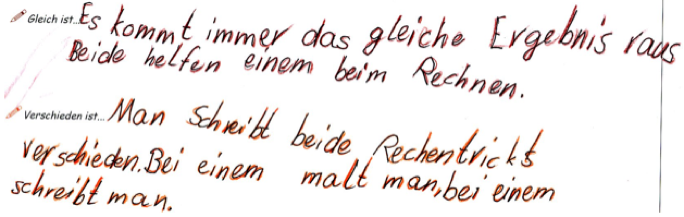 Gleich ist... Es kommt immer das gleiche Ergebnis raus
Beide helfen einem beim Rechnen.
Verschieden ist... Man Schreibt beide Rechentricks
verschieden. Bei einem malt man, bei einem
schreibt man.